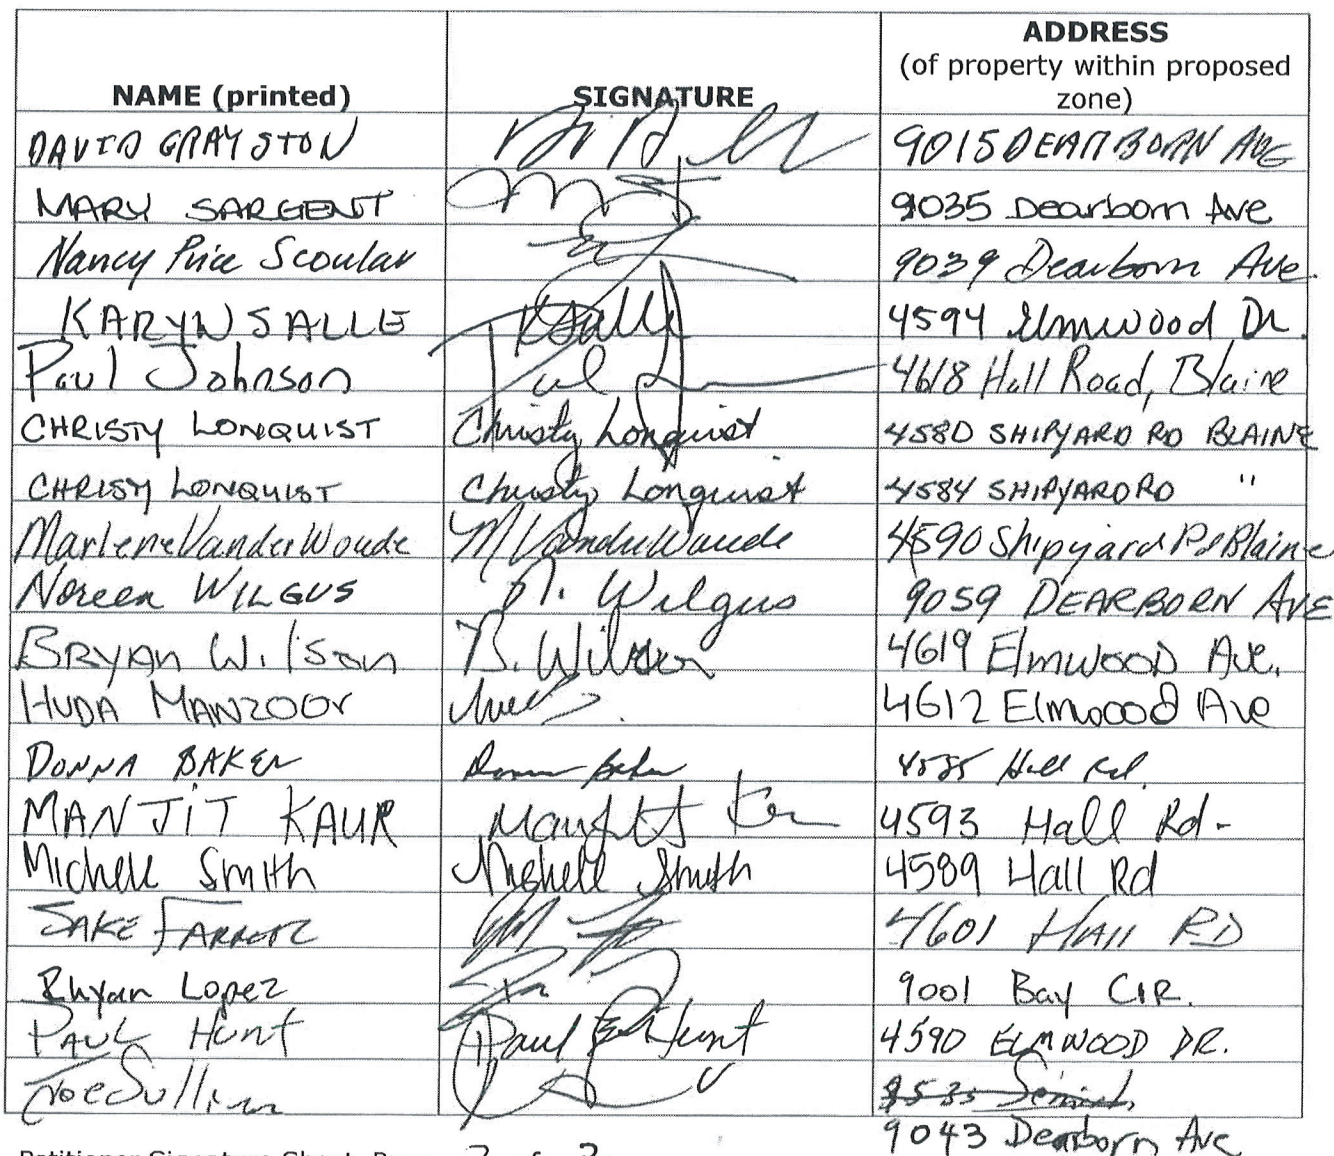 NAME (printed) SIGNATURE ADDRESS
(of property within proposed
zone)
DAVID GRAYSTON 9015 DEARBORN AVE
MARY SARGENT 9035 Dearborn Ave
Nancy Price Scoular 9039 Dearborn Ave.
KARYN SALLE KSalle 4594 Elmwood Dr.
Paul Johnson Paul 4618 Hall Road, Blaine
CHRISTY LONQUIST Christy Lonquist 4580 SHIPYARD RD BLAINE
CHRISTY LONQUIST Christy Lonquist 4584 SHIPYARD RD "
Marlene VanderWoude M VanderWoude 4590 Shipyard Rd Blaine
Noreen WILGUS N. Wilgus 9059 DEARBORN AVE
BRYAN Wilson B. Wilson 4619 Elmwood Ave.
HUDA MANZOOr 4612 Elmwood Ave
DONNA BAKER Donna Baker 4585 Hall Rd.
MANJiT KAUR Manjit Kaur 4593 Hall Rd-
Michell Smith Michell Smith 4589 Hall Rd
JAKE FARRER 4601 HAll RD
Rhyan Lopez 9001 Bay CIR.
PAUL HUNT Paul Hunt 4590 ELMWOOD DR.
Joe Sullivan
9043 Dearborn Ave
Petitioner Signature Sheet, Page 2 of 3